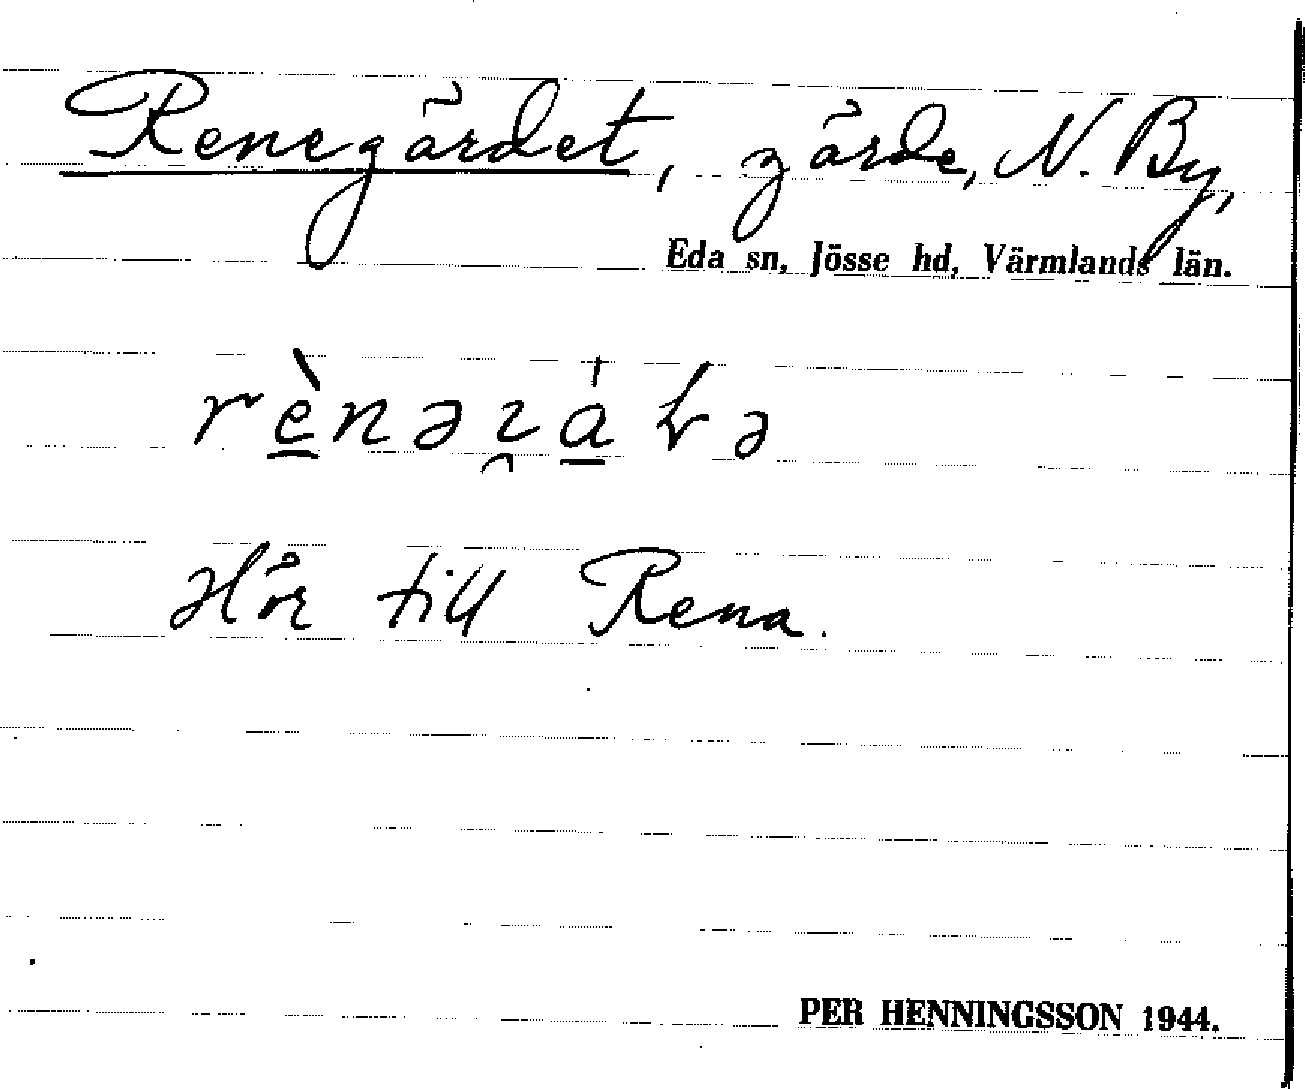 Renegärdet, gärde, N. By,
Eda sn, Jösse hd, Värmlands län.
Hör till Rena.
PER HENNINGSSON 1944.